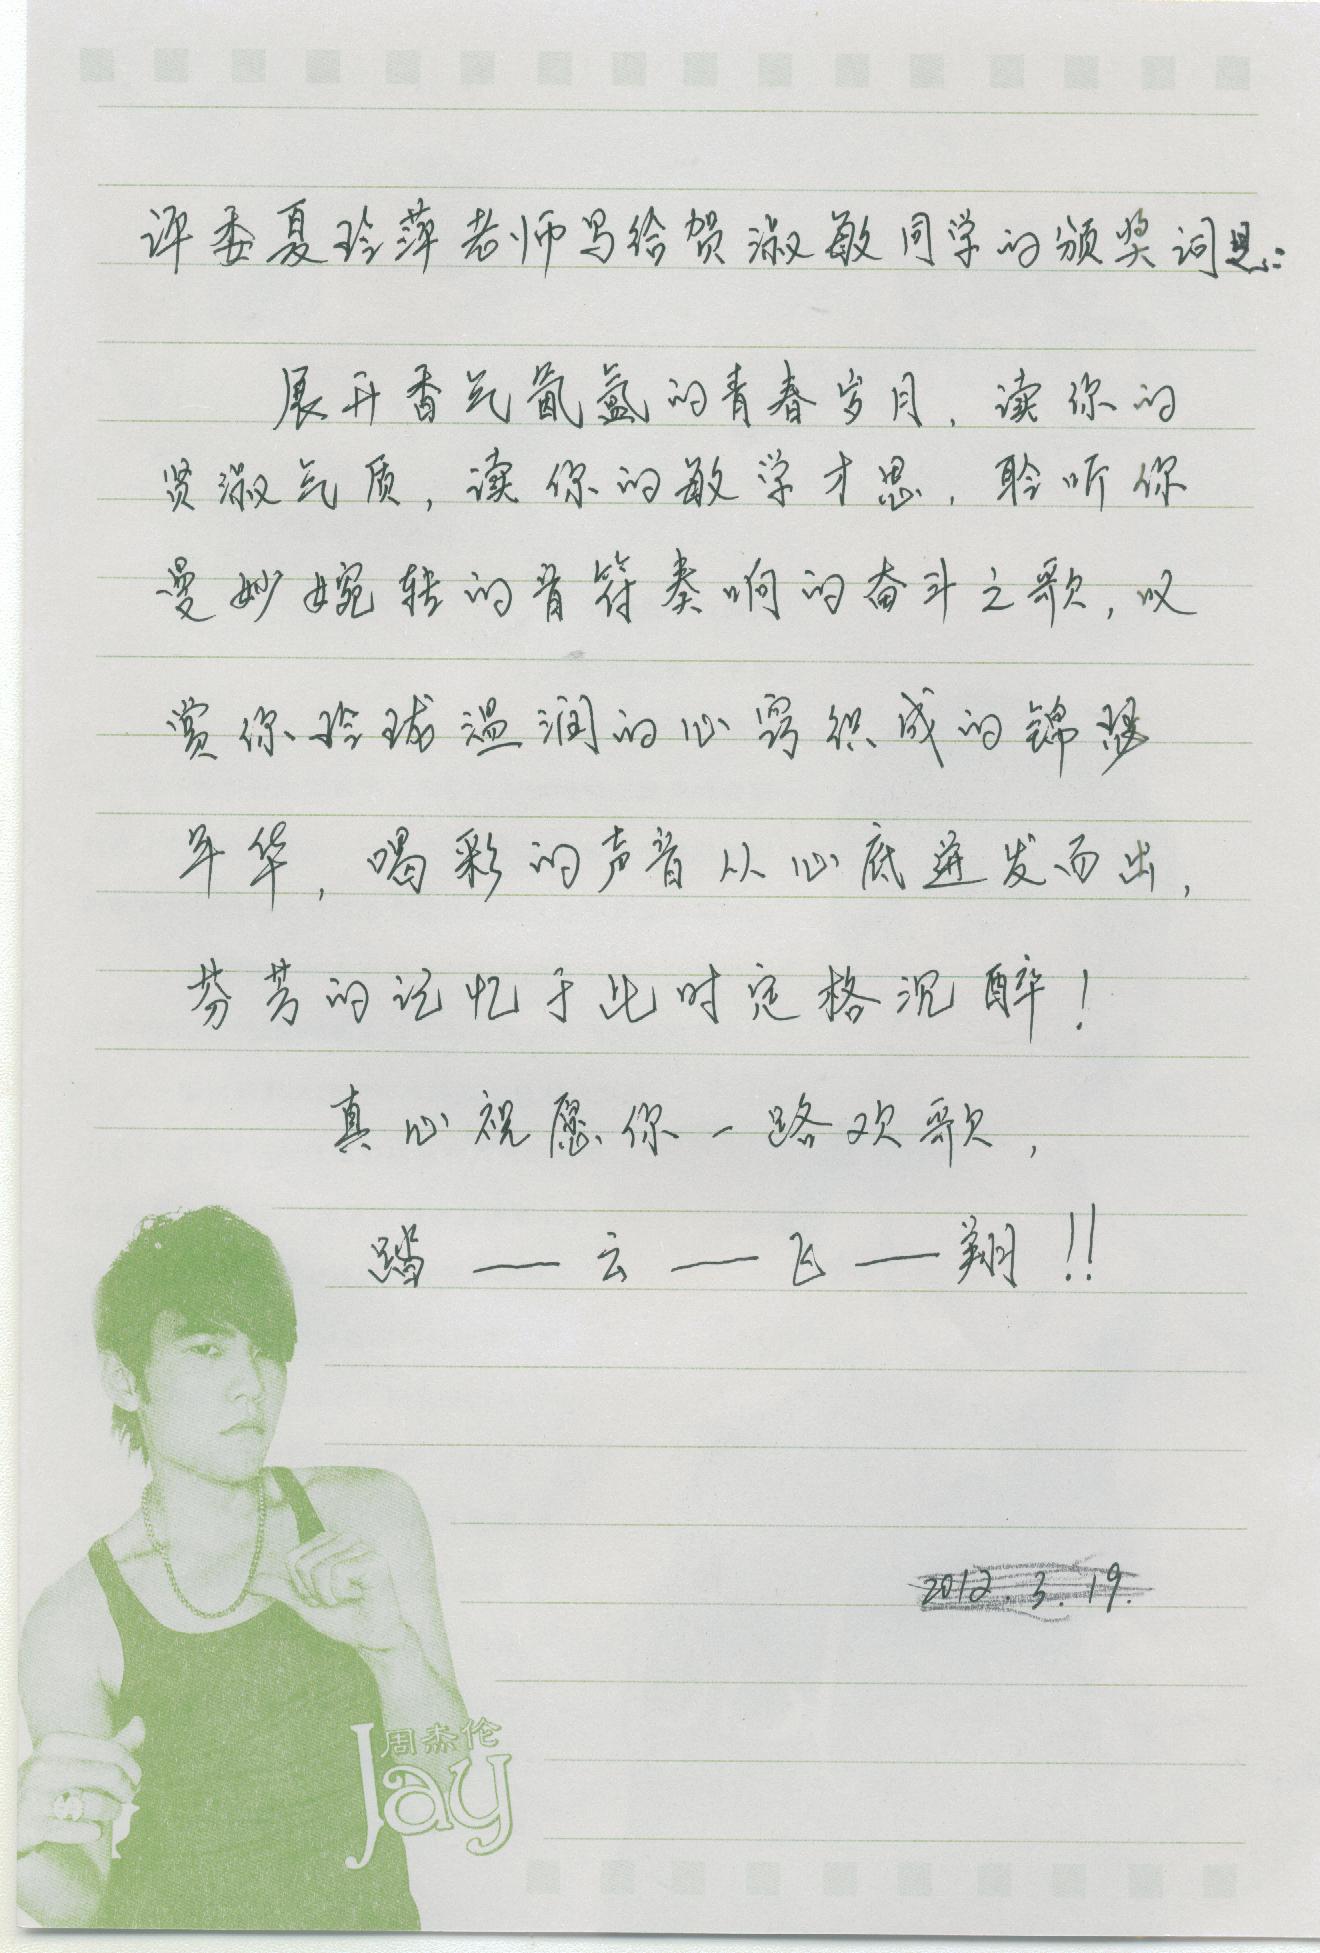 评委夏玲萍老师写给贺淑敏同学的颁奖词是:
展开香气氤氲的青春岁月,读你的
贤淑气质,读你的敏学才思,聆听你
曼妙婉转的音符奏响的奋斗之歌,叹
赏你玲珑温润的心窍织成的锦瑟
年华,喝彩的声音从心底迸发而出,
芬芳的记忆于此时定格沉醉!
真心祝愿你一路欢歌,
踏——云——飞——翔!!
2012.3.19.
周杰伦
Jay